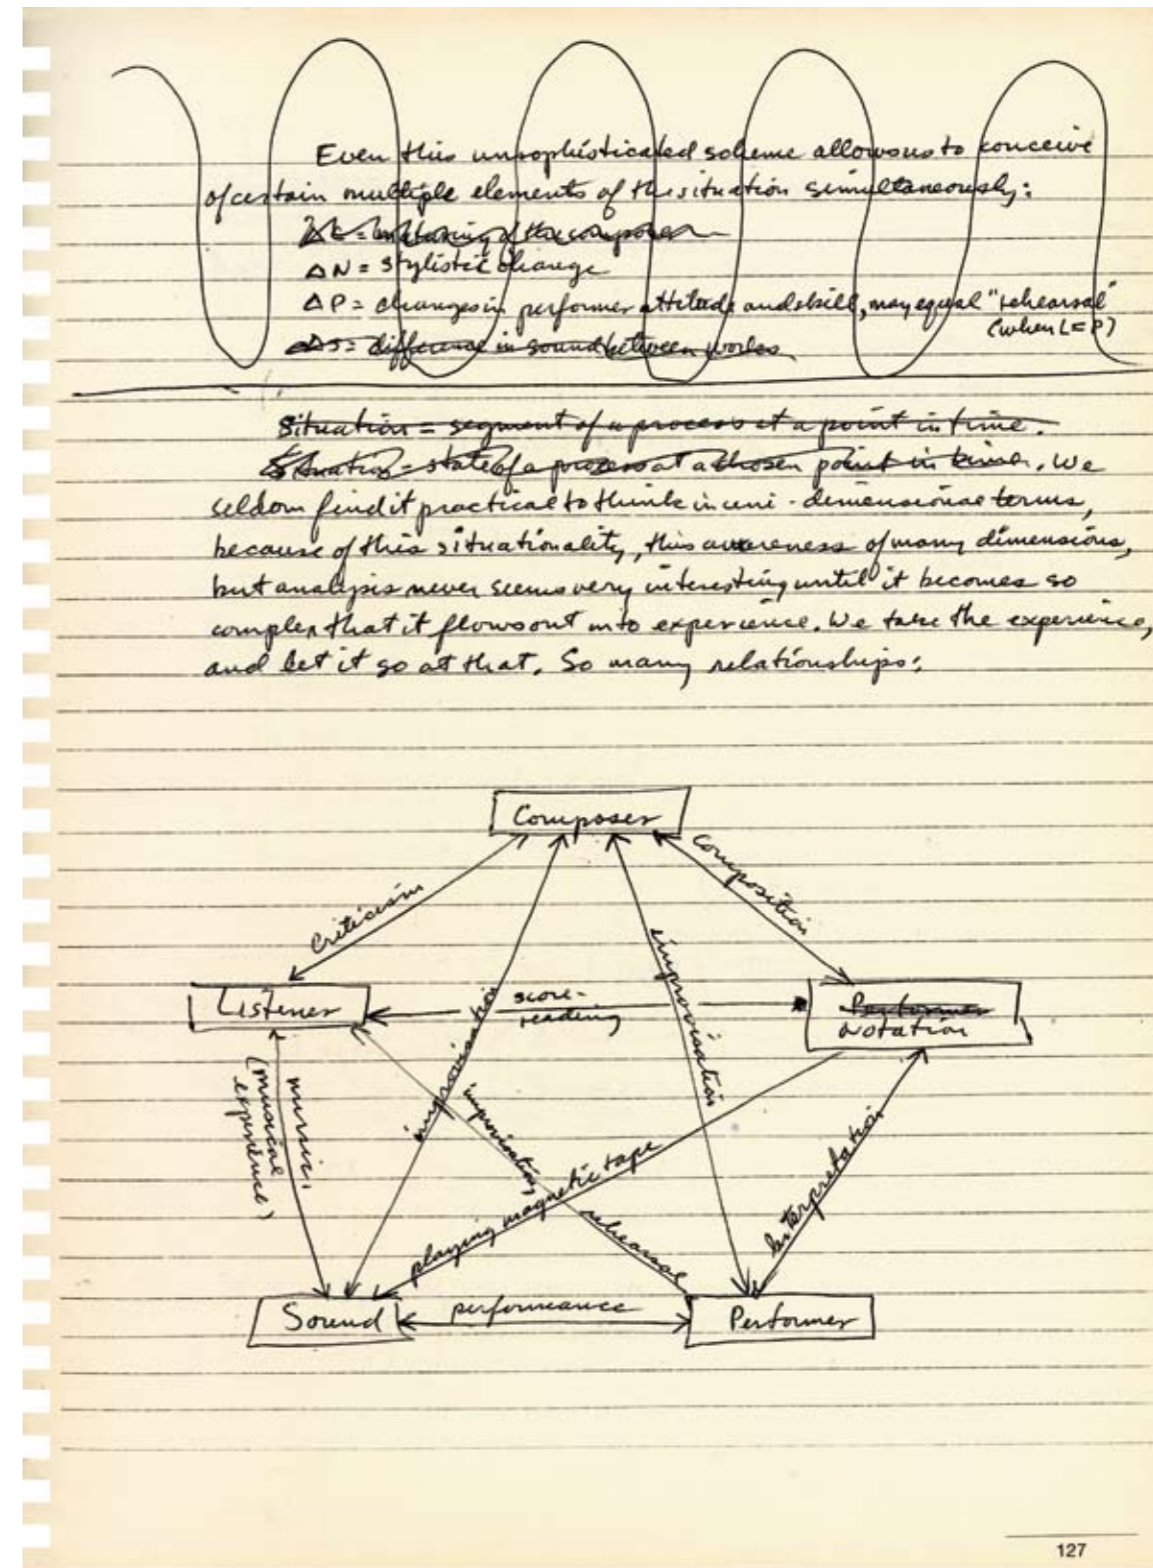 Even this unsophisticated scheme allows us to conceive
of certain multiple elements of the situation simultaneously:
ΔC = maturing of the composer
ΔN = stylistic change
ΔP = changes in performer attitude and skill, may equal "rehearsal"
(when L = P)
ΔS = difference in sound between works
Situation = segment of a process at a point in time.
Situation = state of a process at a chosen point in time. We
seldom find it practical to think in uni-dimensional terms,
because of this situationality, this awareness of many dimensions,
but analysis never seems very interesting until it becomes so
complex that it flows out into experience. We take the experience,
and let it go at that. So many relationships:
Composer
Criticism
composition
Listener
score-
reading
Performer
Notation
improvisation
improvisation
music,
(musical
experience)
improvisation,
rehearsal
playing magnetic tape
Interpretation
Sound
performance
Performer
127